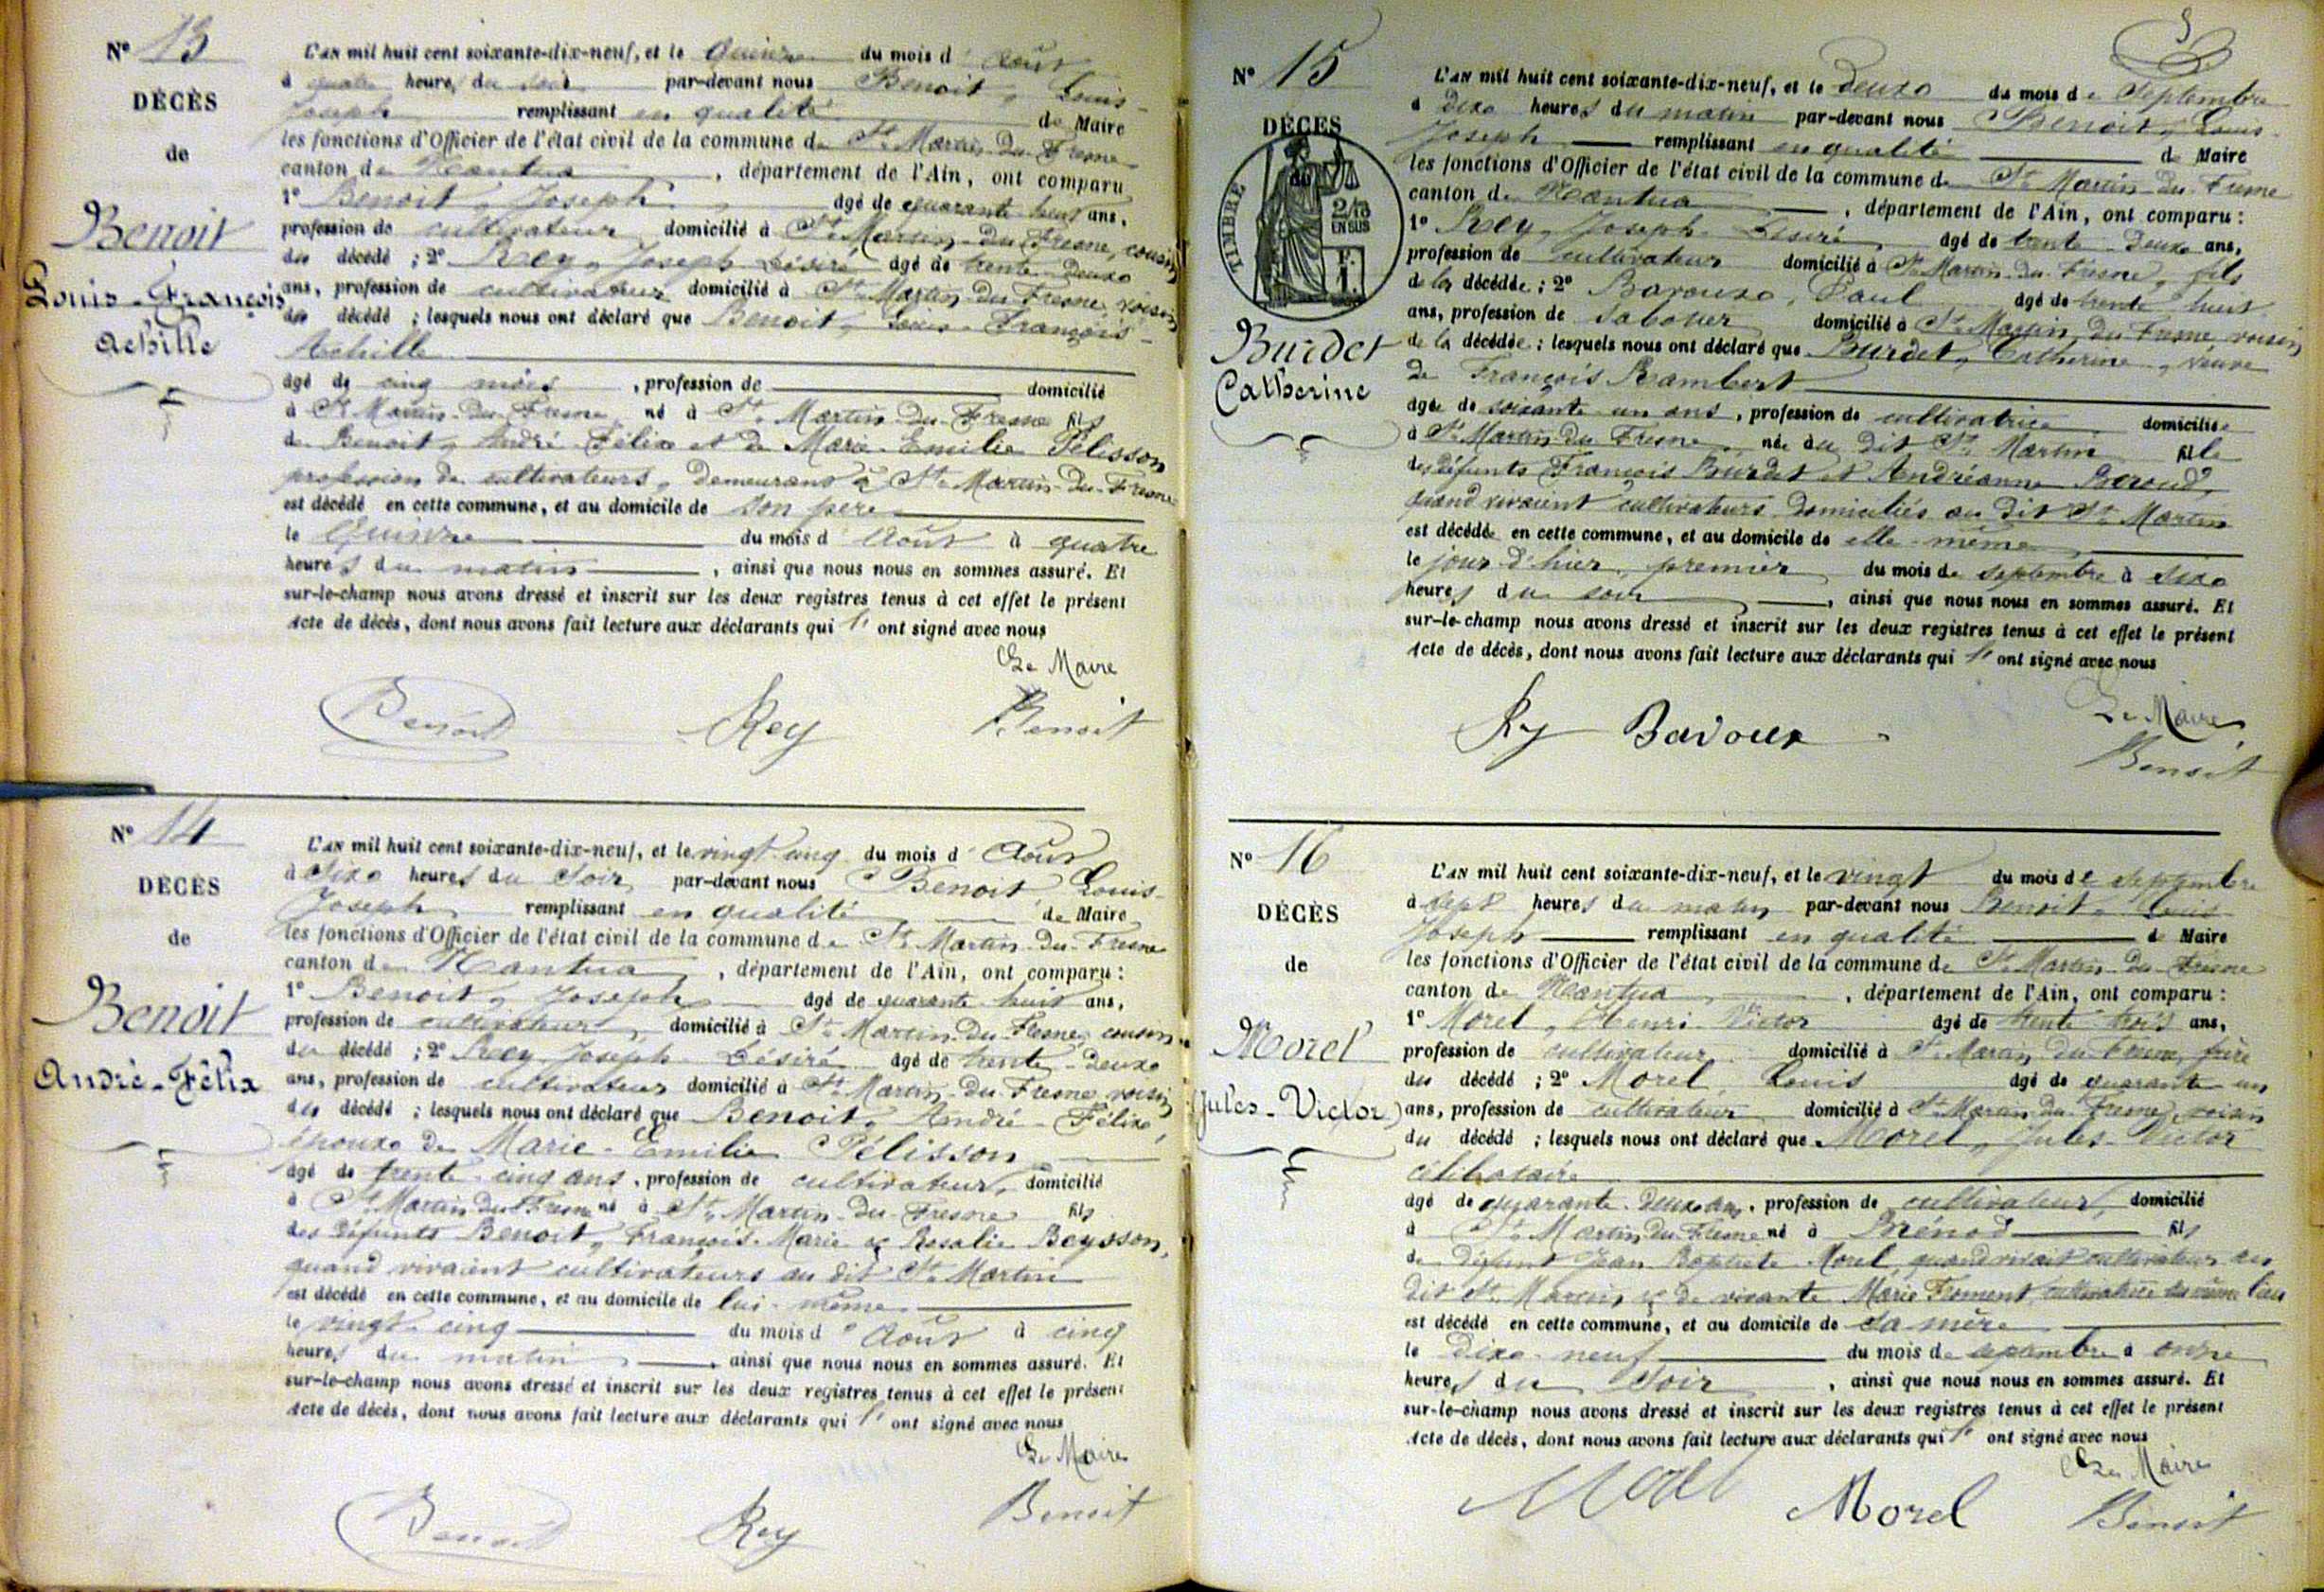 N° 13
DÉCÈS
de
Benoit
Louis-François
Achille
L'AN mil huit cent soixante-dix-neuf, et le quinze du mois d'Août
à quatre heures du soir par-devant nous Benoit, Louis-
Joseph remplissant en qualité de Maire
les fonctions d'Officier de l'état civil de la commune de St Martin-du-Fresne
canton de Nantua, département de l'Ain, ont comparu
1° Benoit, Joseph, âgé de quarante huit ans,
profession de cultivateur domicilié à St Martin-du-Fresne, cousin
du décédé ; 2° Rey, Joseph Désiré âgé de trente-deux
ans, profession de cultivateur domicilié à St Martin du Fresne, voisin
du décédé ; lesquels nous ont déclaré que Benoit, Louis-François-
Achille
âgé de cinq mois, profession de domicilié
à St Martin-du-Fresne né à St Martin-du-Fresne fils
de Benoit, André-Félix et de Marie-Emilie Pélisson
profession de cultivateurs, demeurant à St Martin-du-Fresne
est décédé en cette commune, et au domicile de son père
le Quinze du mois d'Août à quatre
heures du matin, ainsi que nous nous en sommes assuré. Et
sur-le-champ nous avons dressé et inscrit sur les deux registres tenus à cet effet le présent
acte de décès, dont nous avons fait lecture aux déclarants qui l'ont signé avec nous
Le Maire
Benoit Rey Benoit
N° 14
DÉCÈS
de
Benoit
André-Félix
L'AN mil huit cent soixante-dix-neuf, et le vingt cinq du mois d'Août
à Sixe heures du Soir par-devant nous Benoit Louis-
Joseph remplissant en qualité de Maire
les fonctions d'Officier de l'état civil de la commune de St Martin-du-Fresne
canton de Nantua, département de l'Ain, ont comparu :
1° Benoit, Joseph âgé de quarante huit ans,
profession de cultivateur, domicilié à St Martin-du-Fresne, cousin
du décédé ; 2° Rey Joseph Désiré âgé de trente-deux
ans, profession de cultivateur domicilié à St Martin-du-Fresne, voisin
du décédé ; lesquels nous ont déclaré que Benoit, André-Félix,
époux de Marie-Emilie Pélisson
âgé de trente-cinq ans, profession de cultivateur, domicilié
à St Martin du Fresne né à St Martin-du-Fresne fils
des défunts Benoit, François-Marie & Rosalie Beysson,
quand vivaient cultivateurs au dit St Martin
est décédé en cette commune, et au domicile de lui-même
le vingt-cinq du mois d'Août à cinq
heures du matin, ainsi que nous nous en sommes assuré. Et
sur-le-champ nous avons dressé et inscrit sur les deux registres tenus à cet effet le présent
acte de décès, dont nous avons fait lecture aux déclarants qui l'ont signé avec nous
Le Maire
Benoit Rey Benoit
N° 15
DÉCÈS
de
TIMBRE
2/10 EN SUS
F. 1.
Burdet
Catherine
L'AN mil huit cent soixante-dix-neuf, et le deuxe du mois de Septembre
à dixe heures du matin par-devant nous Benoit, Louis-
Joseph remplissant en qualité de Maire
les fonctions d'Officier de l'état civil de la commune de St Martin-du-Fresne
canton de Nantua, département de l'Ain, ont comparu :
1° Rey, Joseph-Désiré, âgé de trente-deux ans,
profession de cultivateur domicilié à St Martin-du-Fresne, fils
de la décédée ; 2° Bavoux, Paul âgé de trente huit
ans, profession de sabotier domicilié à St Martin du Fresne, voisin
de la décédée ; lesquels nous ont déclaré que Burdet, Catherine, veuve
de François Rambert
âgée de soixante un ans, profession de cultivatrice domiciliée
à St Martin du Fresne née au dit St Martin fille
des défunts François Burdet et Andréanne Beroud,
quand vivaient cultivateurs domiciliés au dit St Martin
est décédée en cette commune, et au domicile de elle-même
le jour d'hier, premier du mois de septembre à sixe
heures du soir, ainsi que nous nous en sommes assuré. Et
sur-le-champ nous avons dressé et inscrit sur les deux registres tenus à cet effet le présent
acte de décès, dont nous avons fait lecture aux déclarants qui l'ont signé avec nous
Le Maire
Rey Bavoux Benoit
N° 16
DÉCÈS
de
Morel
(Jules-Victor)
L'AN mil huit cent soixante-dix-neuf, et le vingt du mois de septembre
à sept heures du matin par-devant nous Benoit, Louis
Joseph remplissant en qualité de Maire
les fonctions d'Officier de l'état civil de la commune de St Martin-du-Fresne
canton de Nantua, département de l'Ain, ont comparu :
1° Morel, Henri-Victor âgé de trente trois ans,
profession de cultivateur domicilié à St Martin du Fresne, frère
du décédé ; 2° Morel, Louis âgé de quarante un
ans, profession de cultivateur domicilié à St Martin du Fresne, voisin
du décédé ; lesquels nous ont déclaré que Morel, Jules-Victor
célibataire
âgé de quarante-deux ans, profession de cultivateur, domicilié
à St Martin du Fresne né à Brénod fils
de défunt Jean Baptiste Morel, quand vivait cultivateur au
dit St Martin & de vivante Marie Froment, cultivatrice du même lieu
est décédé en cette commune, et au domicile de sa mère
le Dixe-neuf du mois de septembre à onze
heures du Soir, ainsi que nous nous en sommes assuré. Et
sur-le-champ nous avons dressé et inscrit sur les deux registres tenus à cet effet le présent
acte de décès, dont nous avons fait lecture aux déclarants qui l'ont signé avec nous
Le Maire
Morel Morel Benoit